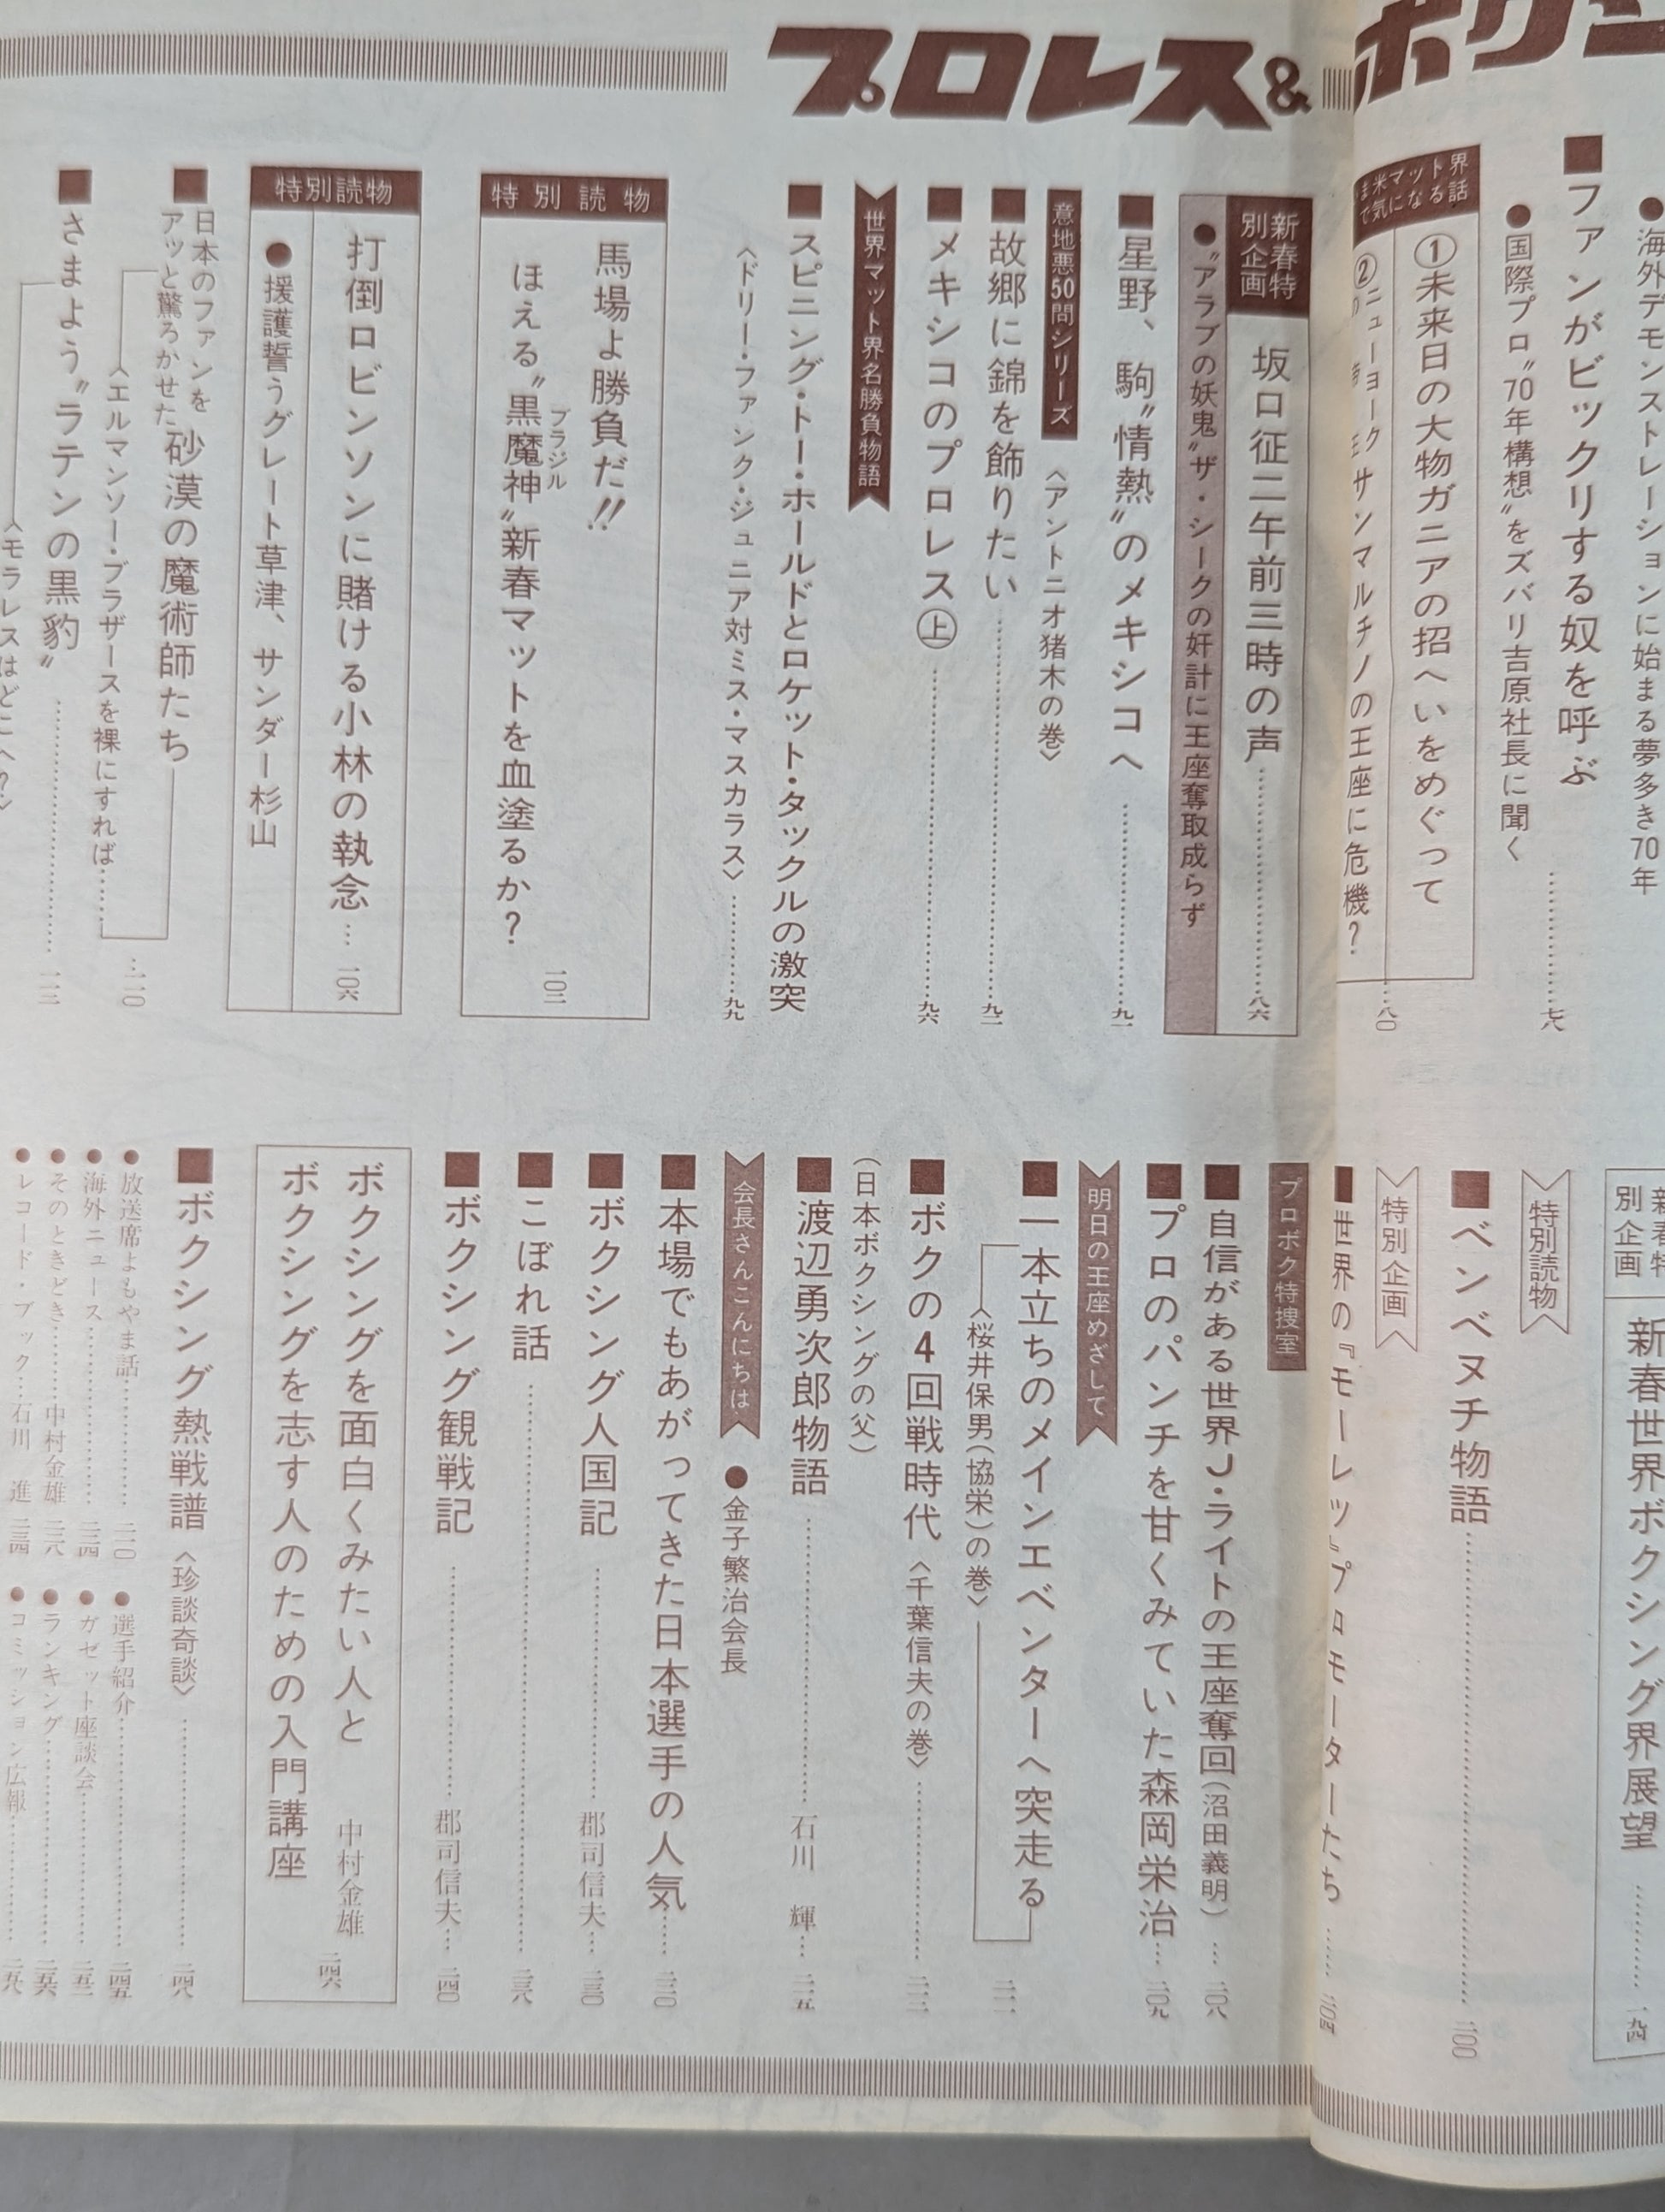 プロレス&
●海外デモンストレーションに始まる夢多き70年
■ファンがビックリする奴を呼ぶ……七八
●国際プロ〝70年構想〟をズバリ吉原社長に聞く
①未来日の大物ガニアの招へいをめぐって
サンマルチノの王座に危機?……八〇
新春特別企画
坂口征二午前三時の声……八六
●〝アラブの妖鬼〟ザ・シークの奸計に王座奪取成らず
■星野、駒〝情熱〟のメキシコへ……九一
意地悪50問シリーズ
〈アントニオ猪木の巻〉
■故郷に錦を飾りたい……九二
■メキシコのプロレス㊤……九六
世界マット界名勝負物語
■スピニング・トー・ホールドとロケット・タックルの激突
〈ドリー・ファンク・ジュニア対ミス・マスカラス〉……九九
特別読物
馬場よ勝負だ!!
ほえる〝黒魔神〟新春マットを血塗るか?
ブラジル
一〇二
特別読物
打倒ロビンソンに賭ける小林の執念…一〇六
●援護誓うグレート草津、サンダー杉山
■日本のファンをアッと驚ろかせた砂漠の魔術師たち
〈エルマンソー・ブラザースを裸にすれば……一一〇
■さまよう〝ラテンの黒豹〟……一一三
〈モラレスはどこへ?〉
新春世界ボクシング界展望……一九四
特別読物
■ベンベヌチ物語……二〇〇
特別企画
■世界の『モーレツ』プロモーターたち……二〇四
プロボク特捜室
■自信がある世界J・ライトの王座奪回(沼田義明)…二〇八
■プロのパンチを甘くみていた森岡栄治…二〇九
明日の王座めざして
■一本立ちのメインエベンターへ突走る
〈桜井保男(協栄)の巻〉
二一一
■ボクの4回戦時代〈千葉信夫の巻〉……二一二
(日本ボクシングの父)
■渡辺勇次郎物語……石川 輝…二一五
会長さんこんにちは
●金子繁治会長
■本場でもあがってきた日本選手の人気……二二〇
■ボクシング人国記……郡司信夫…二三〇
■こぼれ話……二三八
■ボクシング観戦記……郡司信夫…二四〇
ボクシングを面白くみたい人と
ボクシングを志す人のための入門講座
中村金雄
二四六
■ボクシング熱戦譜〈珍談奇談〉……二四八
●放送席よもやま話……二一〇
●海外ニュース……二二四
●そのときどき……中村金雄 二三八
●レコード・ブック…石川 進 二三四
●選手紹介……二四五
●ガゼット座談会……二五二
●ランキング……二五六
●コミッション広報……二五八